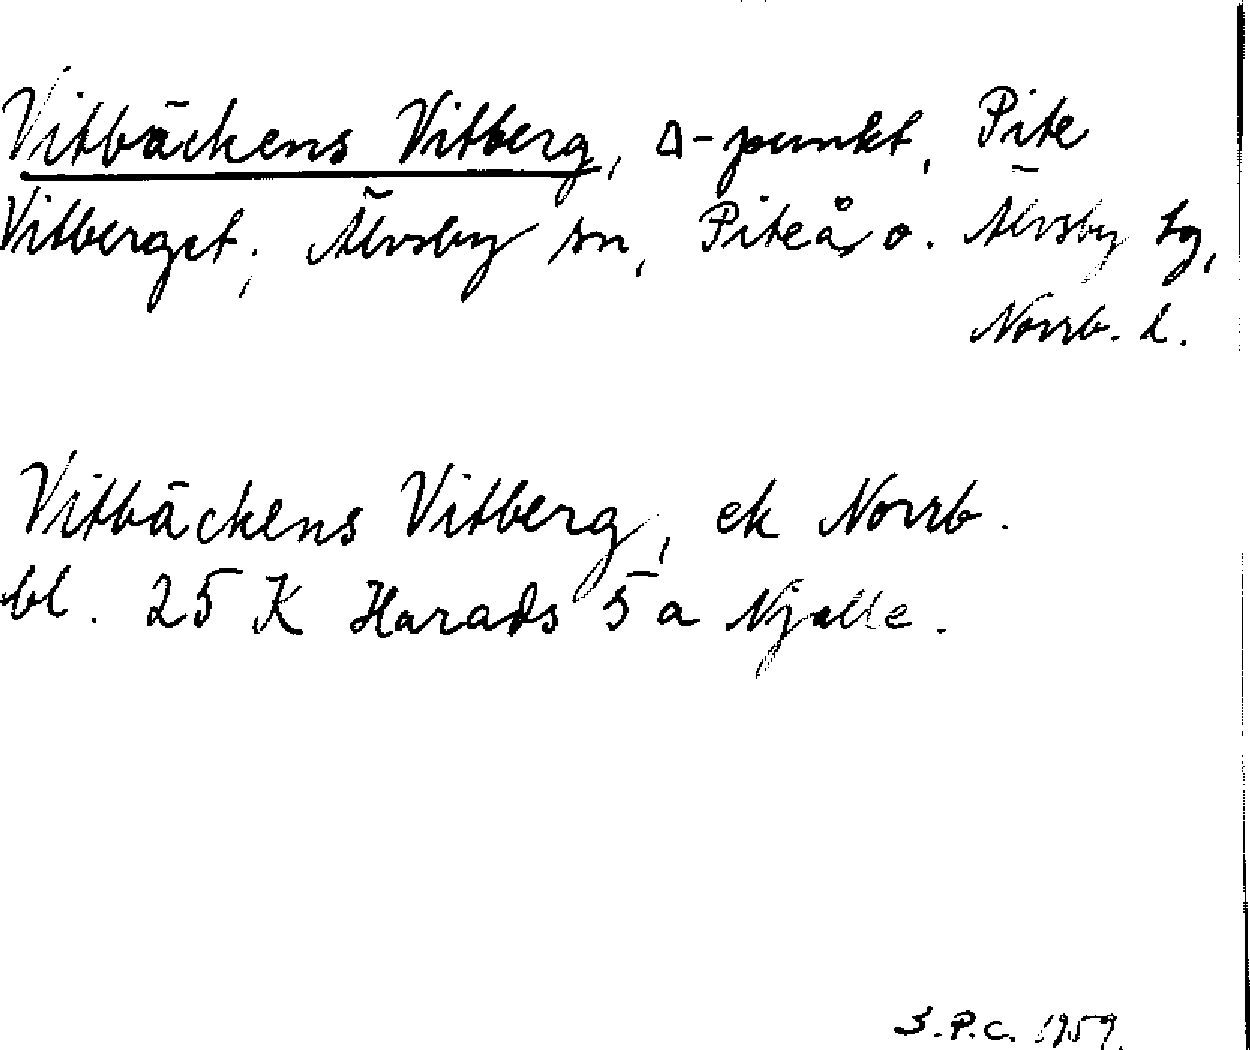 Vitbäckens Vitberg, Δ-punkt, Pite
Vitberget, Älvsby sn, Piteå o. Älvsby tg,
Norrb. l.
Vitbäckens Vitberg, ek Norrb.
bl. 25 K Harads 5 a Njalle.
S.P.C. 1959.